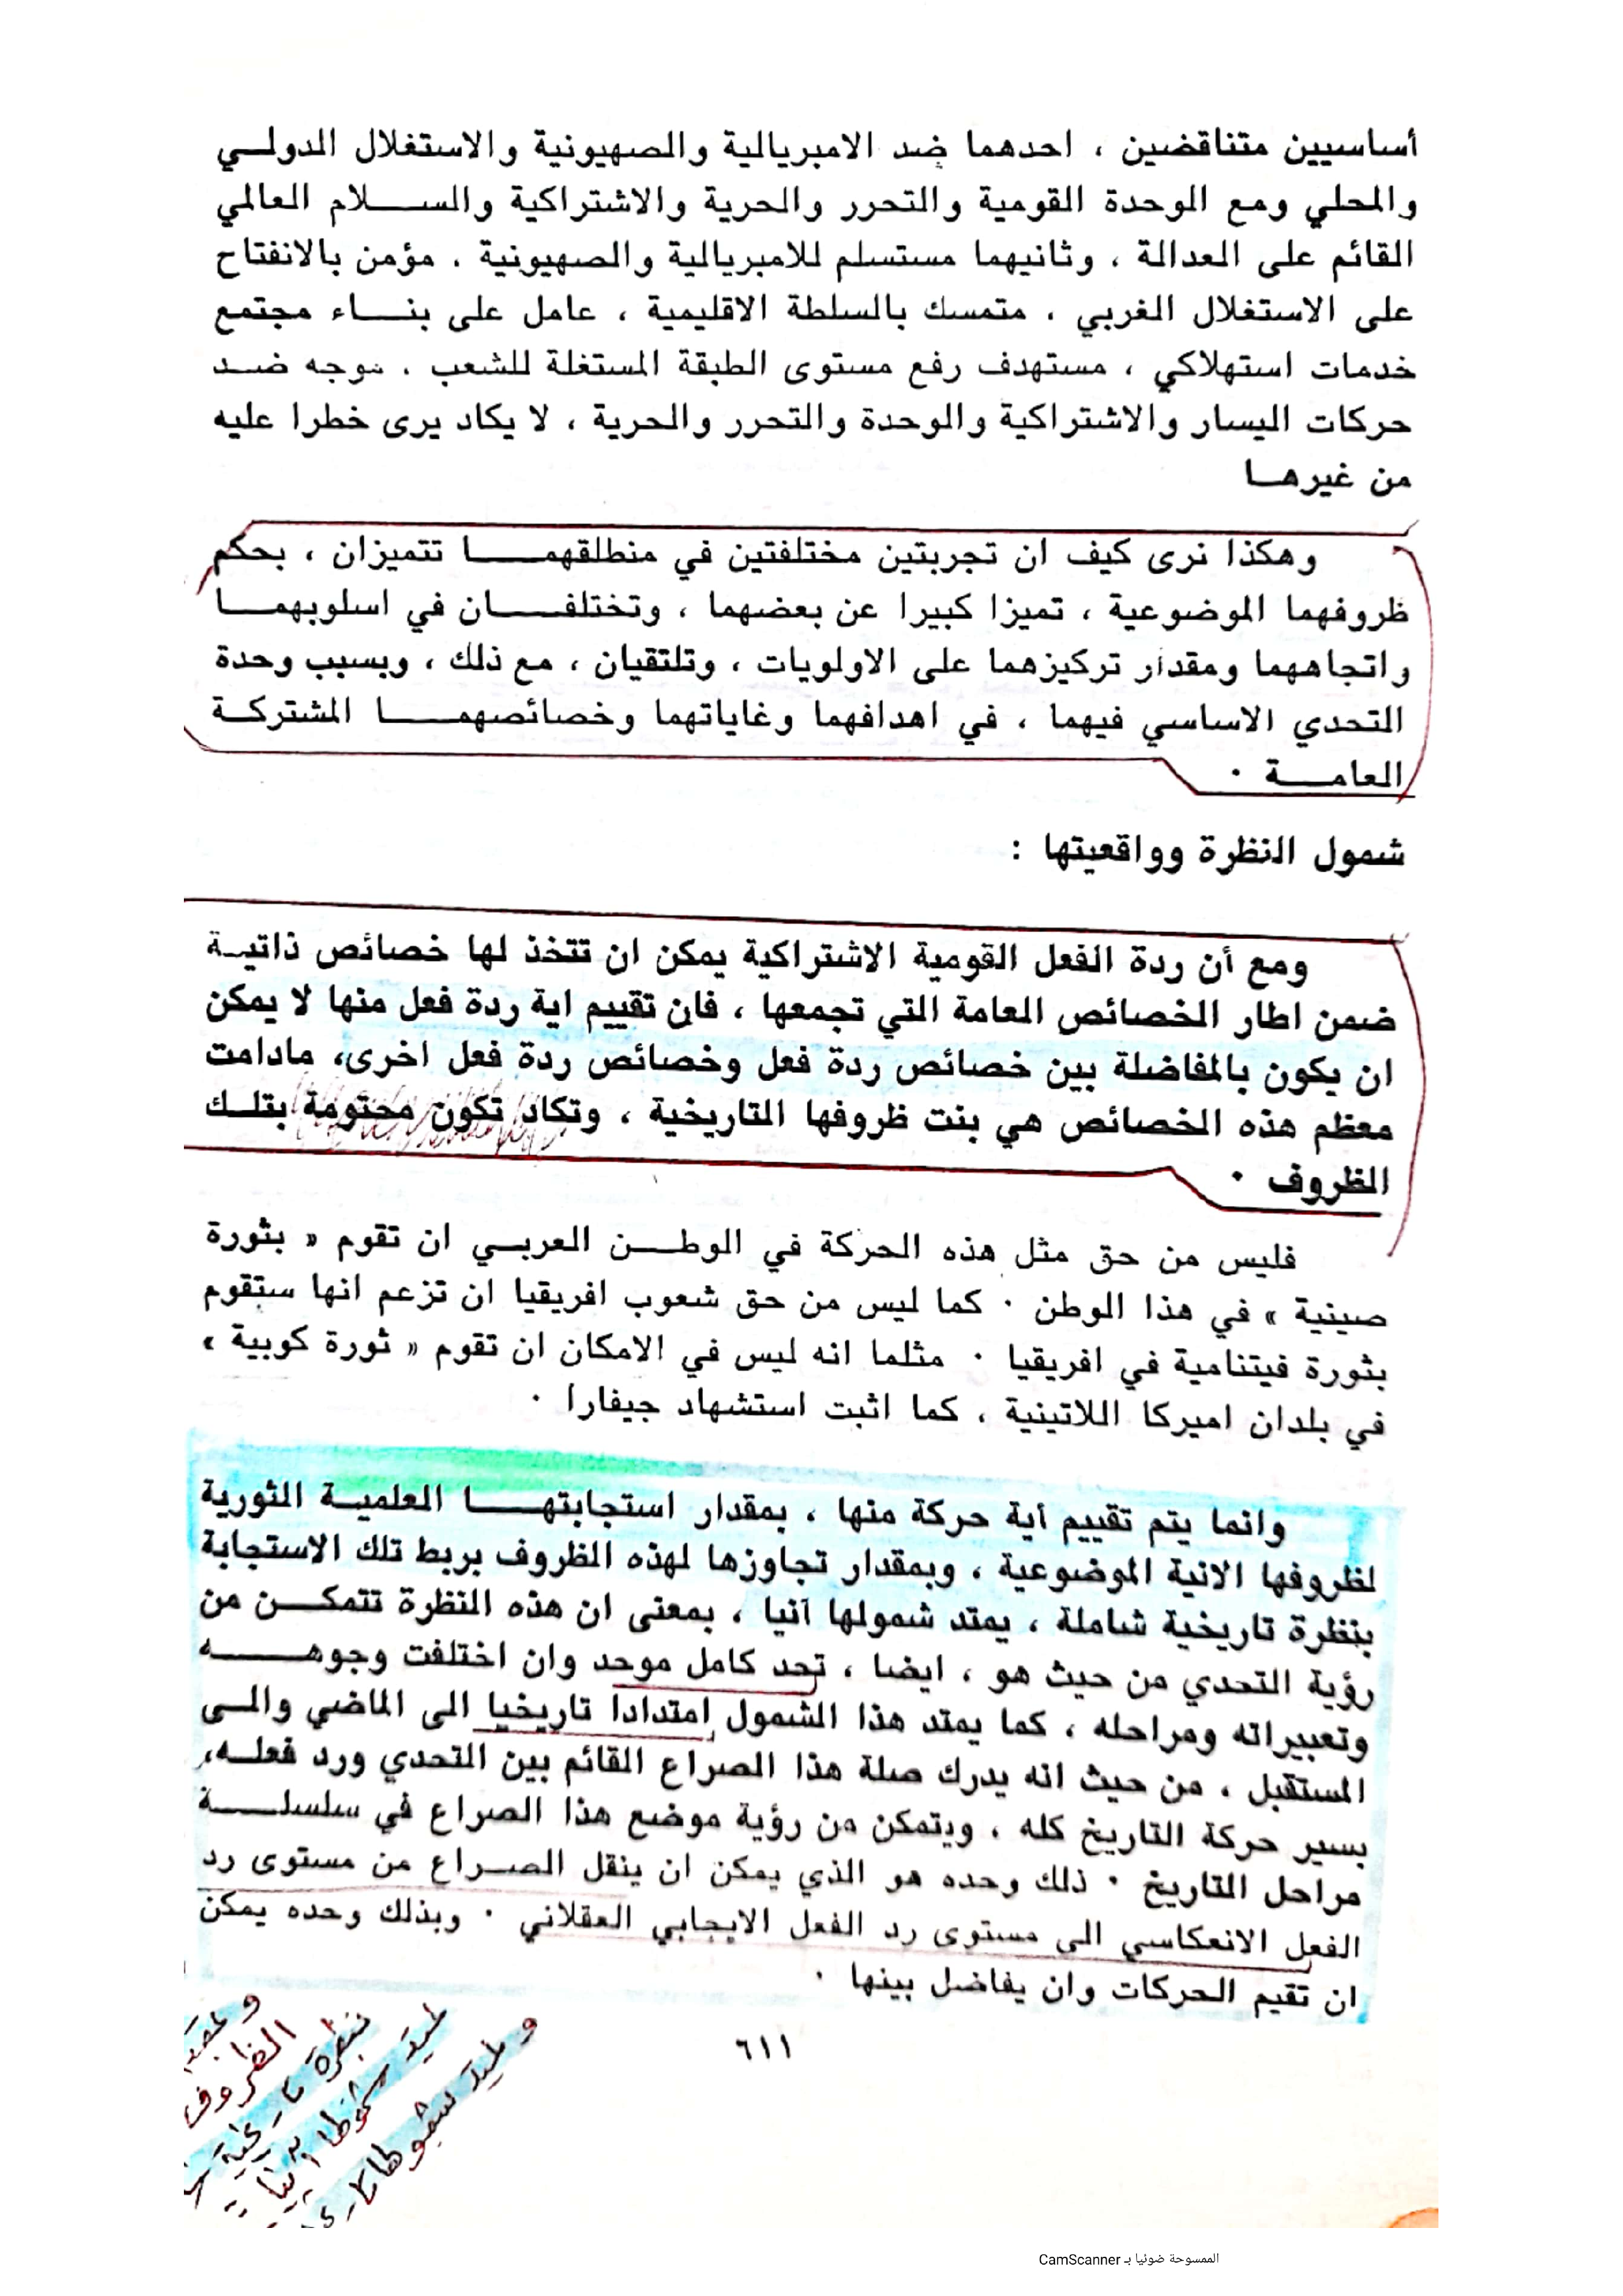 أساسيين متناقضين ، احدهما ضد الامبريالية والصهيونية والاستغلال الدولي
والمحلي ومع الوحدة القومية والتحرر والحرية والاشتراكية والسلام العالمي
القائم على العدالة ، وثانيهما مستسلم للامبريالية والصهيونية ، مؤمن بالانفتاح
على الاستغلال الغربي ، متمسك بالسلطة الاقليمية ، عامل على بناء مجتمع
خدمات استهلاكي ، مستهدف رفع مستوى الطبقة المستغلة للشعب ، موجه ضد
حركات اليسار والاشتراكية والوحدة والتحرر والحرية ، لا يكاد يرى خطرا عليه
من غيرها
وهكذا نرى كيف ان تجربتين مختلفتين في منطلقهما تتميزان ، بحكم
ظروفهما الموضوعية ، تميزا كبيرا عن بعضهما ، وتختلفان في اسلوبهما
واتجاههما ومقدار تركيزهما على الاولويات ، وتلتقيان ، مع ذلك ، وبسبب وحدة
التحدي الاساسي فيهما ، في اهدافهما وغاياتهما وخصائصهما المشتركة
العامة ٠
شمول النظرة وواقعيتها :
ومع أن ردة الفعل القومية الاشتراكية يمكن ان تتخذ لها خصائص ذاتية
ضمن اطار الخصائص العامة التي تجمعها ، فان تقييم اية ردة فعل منها لا يمكن
ان يكون بالمفاضلة بين خصائص ردة فعل وخصائص ردة فعل اخرى، مادامت
معظم هذه الخصائص هي بنت ظروفها التاريخية ، وتكاد تكون محتومة بتلك
الظروف ٠
فليس من حق مثل هذه الحركة في الوطن العربي ان تقوم « بثورة
صينية » في هذا الوطن ٠ كما ليس من حق شعوب افريقيا ان تزعم انها ستقوم
بثورة فيتنامية في افريقيا ٠ مثلما انه ليس في الامكان ان تقوم « ثورة كوبية »
في بلدان اميركا اللاتينية ، كما اثبت استشهاد جيفارا ٠
وانما يتم تقييم أية حركة منها ، بمقدار استجابتها العلمية الثورية
لظروفها الانية الموضوعية ، وبمقدار تجاوزها لهذه الظروف بربط تلك الاستجابة
بنظرة تاريخية شاملة ، يمتد شمولها آنيا ، بمعنى ان هذه النظرة تتمكن من
رؤية التحدي من حيث هو ، ايضا ، تحد كامل موحد وان اختلفت وجوهه
وتعبيراته ومراحله ، كما يمتد هذا الشمول إمتدادا تاريخيا الى الماضي والى
المستقبل ، من حيث انه يدرك صلة هذا الصراع القائم بين التحدي ورد فعله،
بسير حركة التاريخ كله ، ويتمكن من رؤية موضع هذا الصراع في سلسلة
مراحل التاريخ ٠ ذلك وحده هو الذي يمكن ان ينقل الصراع من مستوى رد
الفعل الانعكاسي الى مستوى رد الفعل الايجابي العقلاني ٠ وبذلك وحده يمكن
ان تقيم الحركات وان يفاضل بينها ٠
الظروف
نظرة تاريخية
٦١١
الممسوحة ضوئيا بـ CamScanner